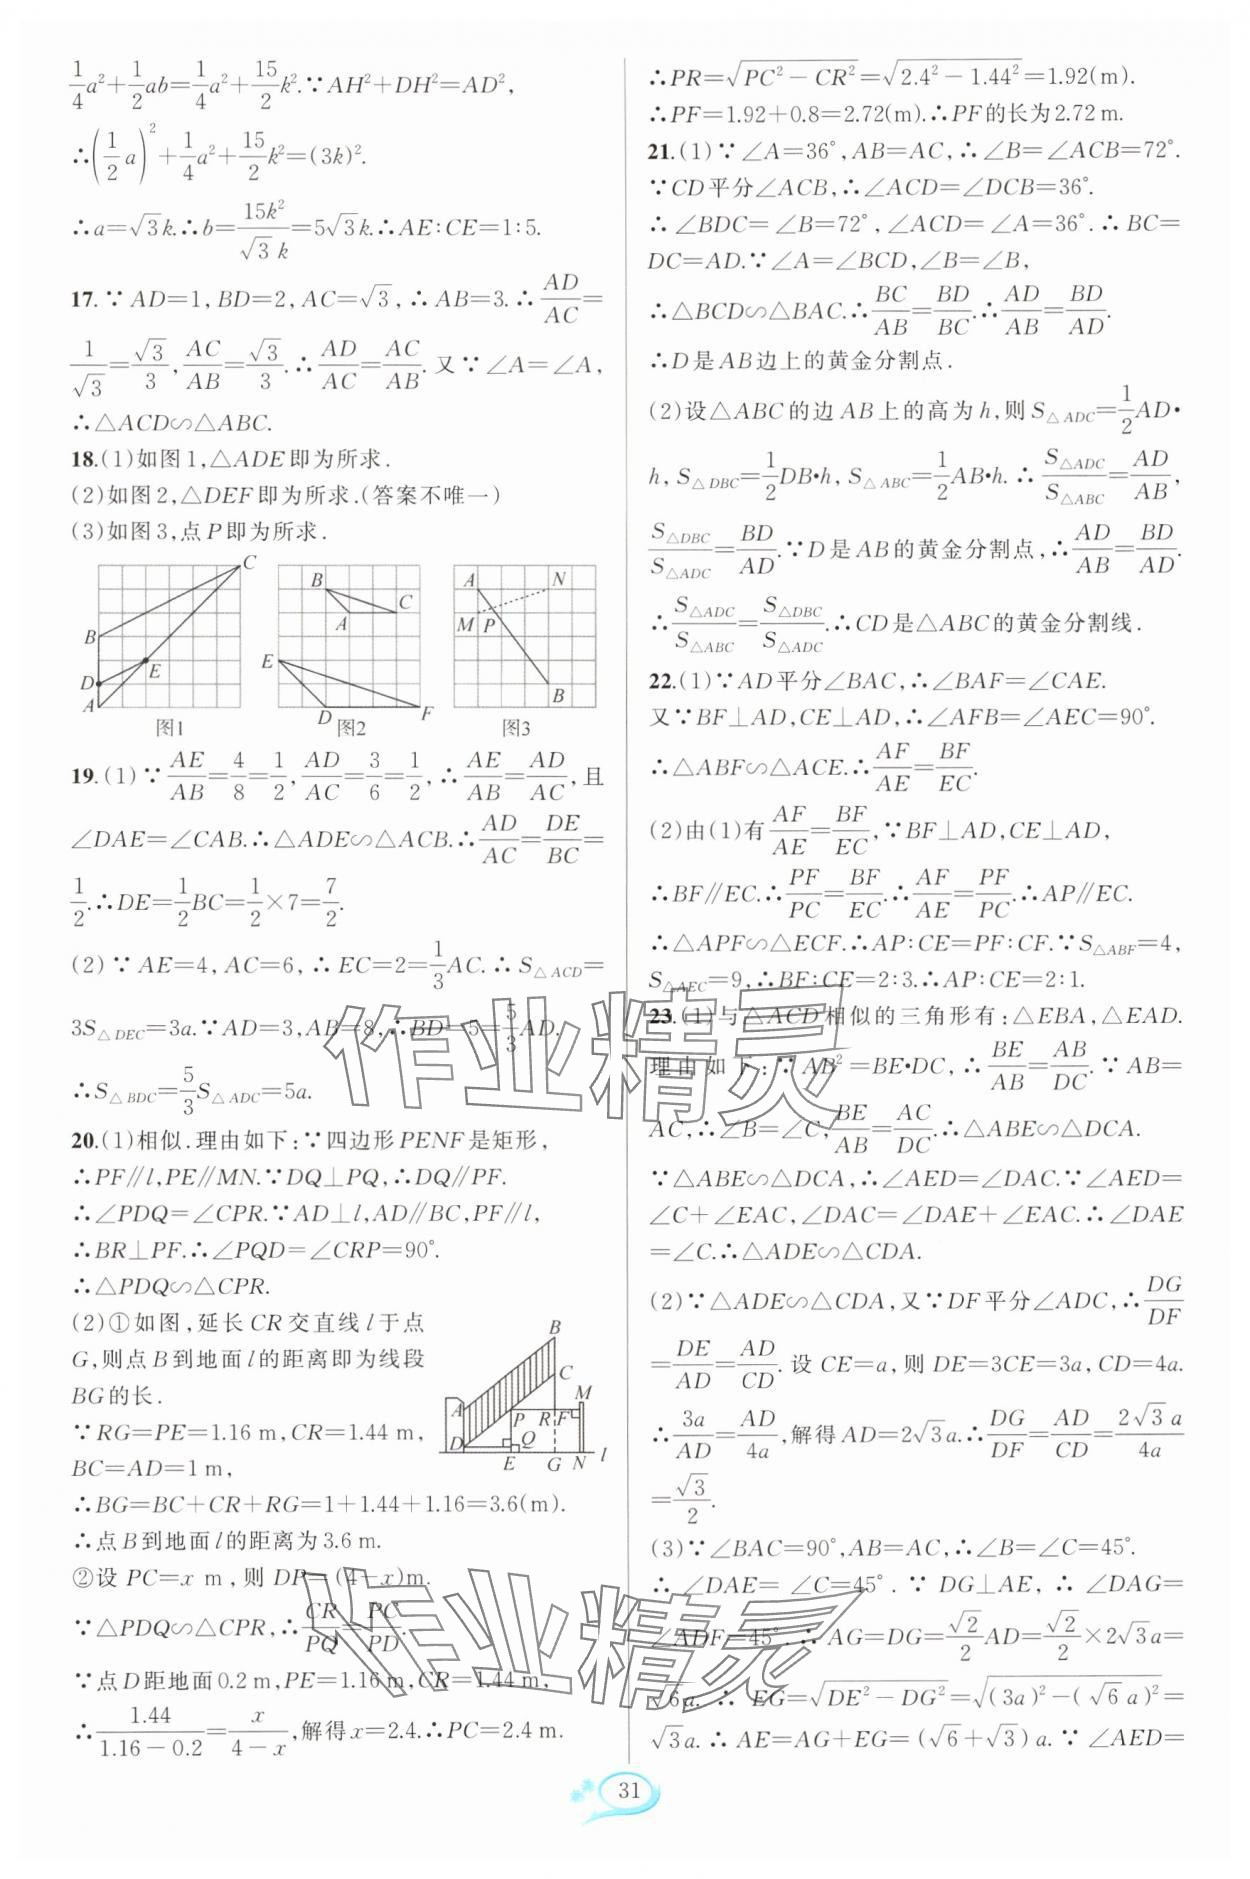 1/4 a²+1/2 ab=1/4 a²+15/2 k².∵AH²+DH²=AD²,
∴(1/2 a)²+1/4 a²+15/2 k²=(3k)².
∴a=√3k.∴b=15k²/√3k=5√3k.∴AE∶CE=1∶5.
17.∵AD=1,BD=2,AC=√3,∴AB=3.∴AD/AC=
1/√3=√3/3,AC/AB=√3/3.∴AD/AC=AC/AB.又∵∠A=∠A,
∴△ACD∽△ABC.
18.(1)如图1,△ADE即为所求.
(2)如图2,△DEF即为所求.(答案不唯一)
(3)如图3,点P即为所求.
C B D E A
图1
B C A E D F
图2
A N M P B
图3
19.(1)∵AE/AB=4/8=1/2,AD/AC=3/6=1/2,∴AE/AB=AD/AC,且
∠DAE=∠CAB.∴△ADE∽△ACB.∴AD/AC=DE/BC=
1/2.∴DE=1/2BC=1/2×7=7/2.
(2)∵AE=4,AC=6,∴EC=2=1/3AC.∴S△ACD=
3S△DEC=3a.∵AD=3,AB=8,∴BD=5=5/3AD.
∴S△BDC=5/3S△ADC=5a.
20.(1)相似.理由如下:∵四边形PENF是矩形,
∴PF∥l,PE∥MN.∵DQ⊥PQ,∴DQ∥PF.
∴∠PDQ=∠CPR.∵AD⊥l,AD∥BC,PF∥l,
∴BR⊥PF.∴∠PQD=∠CRP=90°.
∴△PDQ∽△CPR.
(2)①如图,延长CR交直线l于点
G,则点B到地面l的距离即为线段
BG的长.
∵RG=PE=1.16 m,CR=1.44 m,
BC=AD=1 m,
B C M A P R F D Q E G N l
∴BG=BC+CR+RG=1+1.44+1.16=3.6(m).
∴点B到地面l的距离为3.6 m.
②设PC=x m,则DP=(4-x)m.
∵△PDQ∽△CPR,∴CR/PQ=PC/PD.
∵点D距地面0.2 m,PE=1.16 m,CR=1.44 m,
∴1.44/(1.16-0.2)=x/(4-x),解得x=2.4.∴PC=2.4 m.
∴PR=√(PC²-CR²)=√(2.4²-1.44²)=1.92(m).
∴PF=1.92+0.8=2.72(m).∴PF的长为2.72 m.
21.(1)∵∠A=36°,AB=AC,∴∠B=∠ACB=72°.
∵CD平分∠ACB,∴∠ACD=∠DCB=36°.
∴∠BDC=∠B=72°,∠ACD=∠A=36°.∴BC=
DC=AD.∵∠A=∠BCD,∠B=∠B,
∴△BCD∽△BAC.∴BC/AB=BD/BC.∴AD/AB=BD/AD.
∴D是AB边上的黄金分割点.
(2)设△ABC的边AB上的高为h,则S△ADC=1/2AD•
h,S△DBC=1/2DB•h,S△ABC=1/2AB•h.∴S△ADC/S△ABC=AD/AB,
S△DBC/S△ADC=BD/AD.∵D是AB的黄金分割点,∴AD/AB=BD/AD.
∴S△ADC/S△ABC=S△DBC/S△ADC.∴CD是△ABC的黄金分割线.
22.(1)∵AD平分∠BAC,∴∠BAF=∠CAE.
又∵BF⊥AD,CE⊥AD,∴∠AFB=∠AEC=90°.
∴△ABF∽△ACE.∴AF/AE=BF/EC.
(2)由(1)有AF/AE=BF/EC,∵BF⊥AD,CE⊥AD,
∴BF∥EC.∴PF/PC=BF/EC.∴AF/AE=PF/PC.∴AP∥EC.
∴△APF∽△ECF.∴AP∶CE=PF∶CF.∵S△ABF=4,
S△AEC=9,∴BF∶CE=2∶3.∴AP∶CE=2∶1.
23.(1)与△ACD相似的三角形有:△EBA,△EAD.
理由如下:∵AB²=BE•DC,∴BE/AB=AB/DC.∵AB=
AC,∴∠B=∠C,BE/AB=AC/DC.∴△ABE∽△DCA.
∵△ABE∽△DCA,∴∠AED=∠DAC.∵∠AED=
∠C+∠EAC,∠DAC=∠DAE+∠EAC.∴∠DAE
=∠C.∴△ADE∽△CDA.
(2)∵△ADE∽△CDA,又∵DF平分∠ADC,∴DG/DF
=DE/AD=AD/CD.设CE=a,则DE=3CE=3a,CD=4a.
∴3a/AD=AD/4a,解得AD=2√3a.∴DG/DF=AD/CD=2√3a/4a
=√3/2.
(3)∵∠BAC=90°,AB=AC,∴∠B=∠C=45°.
∴∠DAE=∠C=45°.∵DG⊥AE,∴∠DAG=
∠ADF=45°.∴AG=DG=√2/2AD=√2/2×2√3a=
√6a.∴EG=√(DE²-DG²)=√((3a)²-(√6a)²)=
√3a.∴AE=AG+EG=(√6+√3)a.∵∠AED=
作业精灵
作业精灵
31